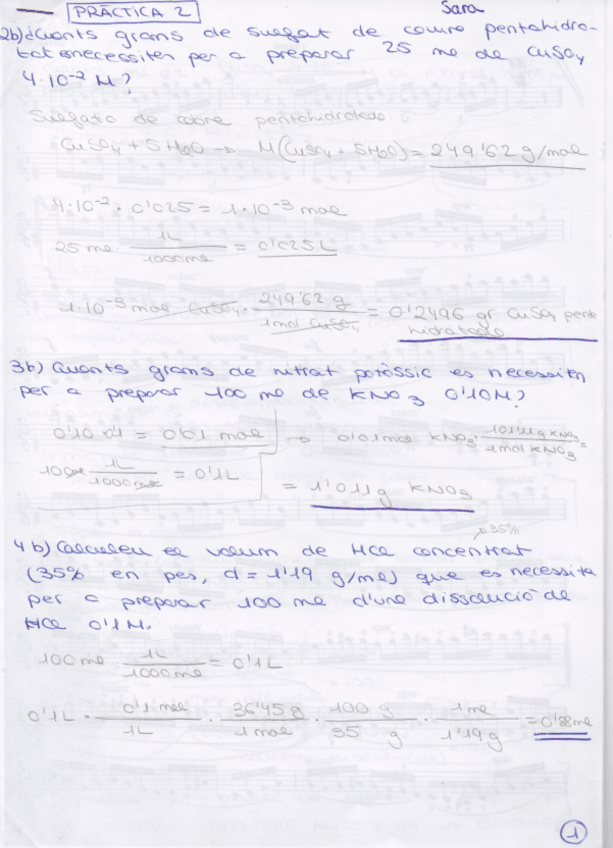 PRÀCTICA 2
Sara
2b) ¿Quants grams de sulfat de coure pentahidra-
tat es necessiten per a preparar 25 ml de CuSO4
4·10-2 M?
Sulfato de cobre pentahidratado.
CuSO4 + 5H2O → M(CuSO4 + 5H2O) = 249'62 g/mol
4·10-2 · 0'025 = 1·10-3 mol
25 ml · 1L / 1000ml = 0'025 L
1·10-3 mol CuSO4 · 249'62 g / 1mol CuSO4 = 0'2496 gr CuSO4 penta
hidratado
3b) Quants grams de nitrat potàssic es necessiten
per a preparar 100 ml de KNO3 0'10M?
0'10 · 0'1 = 0'01 mol → 0'01mol KNO3 · 101'11g KNO3 / 1mol KNO3 =
100ml · 1L / 1000ml = 0'1L
= 1'011g KNO3
→ 35%
4b) Calculeu el volum de HCl concentrat
(35% en pes, d = 1'19 g/ml) que es necessita
per a preparar 100 ml d'una dissolució de
HCl 0'1M.
100 ml · 1L / 1000ml = 0'1L
0'1L · 0'1 mol / 1L · 36'45 g / 1 mol · 100 g / 35 g · 1 ml / 1'19 g = 0'88 ml
1